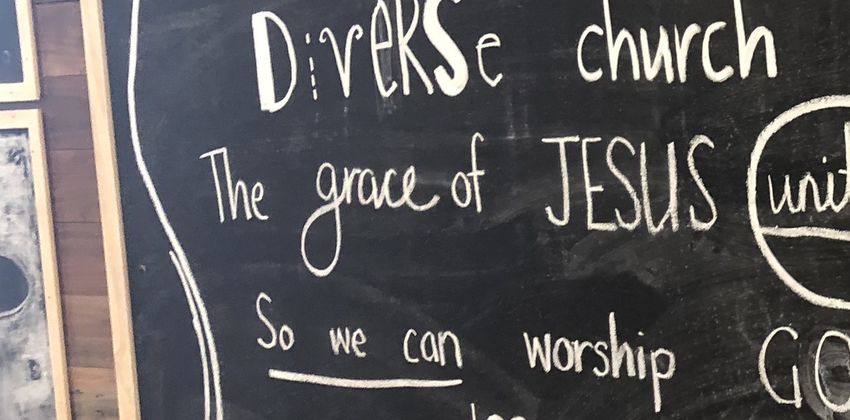 Diverse church
The grace of JESUS
So we can worship